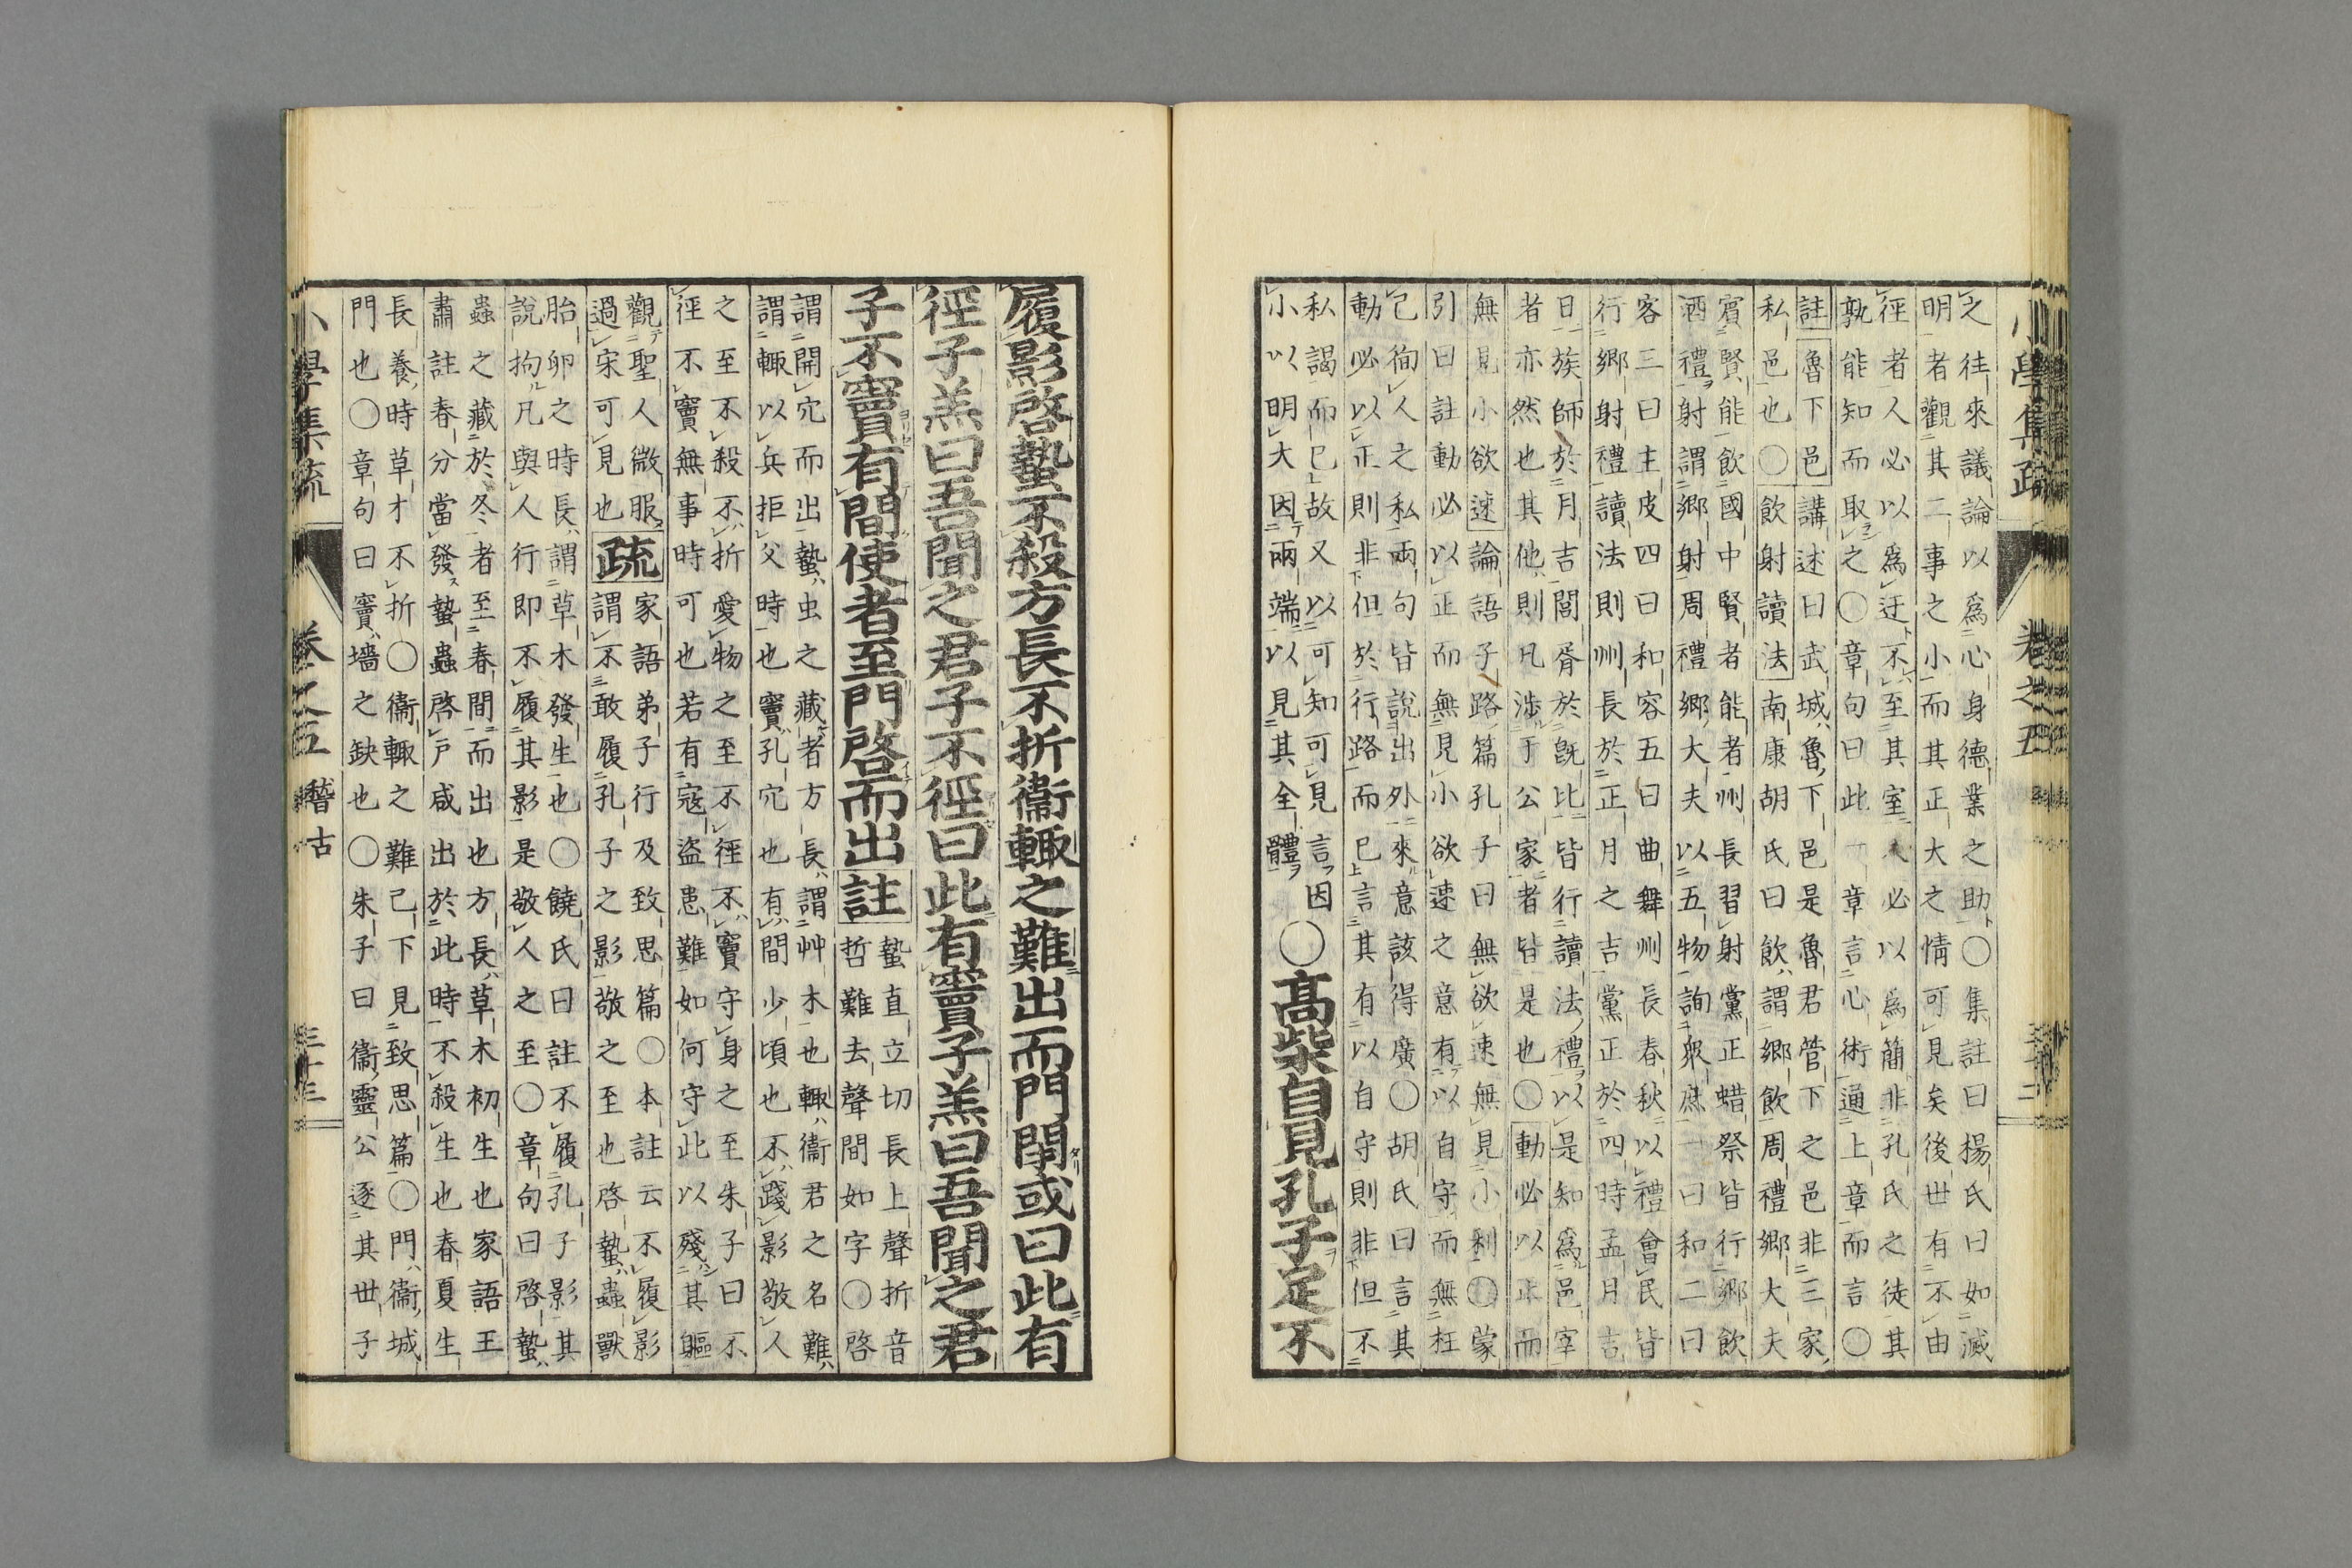 小學集疏 卷之五
之往來議論以爲心身德業之助〇集註曰楊氏曰如滅
明者觀其二事之小而其正大之情可見矣後世有不由
徑者人必以爲迂不至其室人必以爲簡非孔氏之徒其
孰能知而取之〇章句曰此一章言心術通上章而言〇
註魯下邑講述曰武城魯下邑是魯君管下之邑非三家
私邑也〇飲射讀法南康胡氏曰飲謂鄉飲周禮鄉大夫
賓賢能飲國中賢者能者州長習射黨正蜡祭皆行鄉飲
酒禮射謂鄉射周禮鄉大夫以五物詢衆庶一曰和二曰
客三曰主皮四曰和容五曰曲舞州長春秋以禮會民皆
行鄉射禮讀法則州長於正月之吉黨正於四時孟月吉
日族師於月吉閭胥於旣比皆行讀法禮以是知爲邑宰
者亦然也其他則凡涉于公家者皆是也〇動必以正而
無見小欲速論語子路篇孔子曰無欲速無見小利〇蒙
引曰註動必以正而無見小欲速之意有以自守而無枉
己徇人之私兩句皆說出外來意該得廣〇胡氏曰言其
動必以正則非但於行路而已言其有以自守則非但不
私謁而已故又以可知可見言因
小以明大因兩端以見其全體〇高柴自見孔子足不
履影啓蟄不殺方長不折衞輒之難出而門閉或曰此有
徑子羔曰吾聞之君子不徑曰此有竇子羔曰吾聞之君
子不竇有間使者至門啓而出註蟄直立切長上聲折音
哲難去聲間如字〇啓
謂開穴而出蟄虫之藏者方長謂艸木也輒衞君之名難
謂輒以兵拒父時也竇孔穴也有間少頃也不踐影敬人
之至不殺不折愛物之至不徑不竇守身之至朱子曰不
徑不竇無事時可也若有寇盜患難如何守此以殘其軀
觀聖人微服家語弟子行及致思篇〇本註云不履影
過宋可見也疏謂不敢履孔子之影敬之至也啓蟄蟲獸
胎卵之時長謂草木發生也〇饒氏曰註不履孔子影其
說拘凡與人行即不履其影是敬人之至〇章句曰啓蟄
蟲之藏於冬者至春間而出也方長草木初生也家語王
肅註春分當發蟄蟲啓戶咸出於此時不殺生也春夏生
長養時草才不折〇衞輒之難己下見致思篇〇門衞城
門也〇章句曰竇墻之缺也〇朱子曰衞靈公逐其世子
小學集疏 卷之五 稽古 三十三